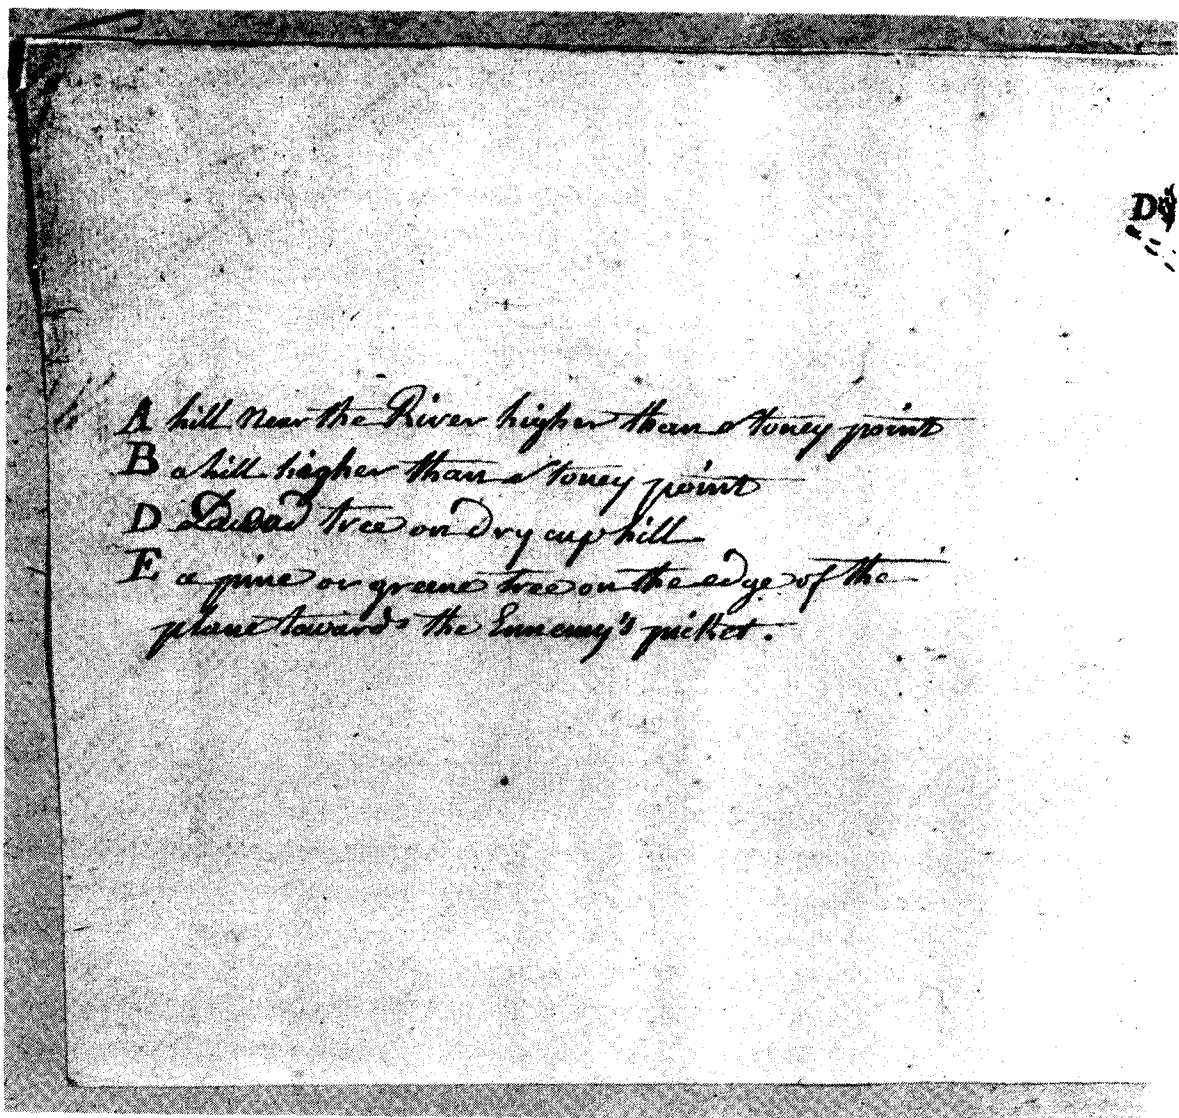 D
A hill near the River higher than stoney point
B a hill higher than stoney point
D tree on dry cup hill
E a pine or greene tree on the edge of the
plane towards the Ennemy's picket.